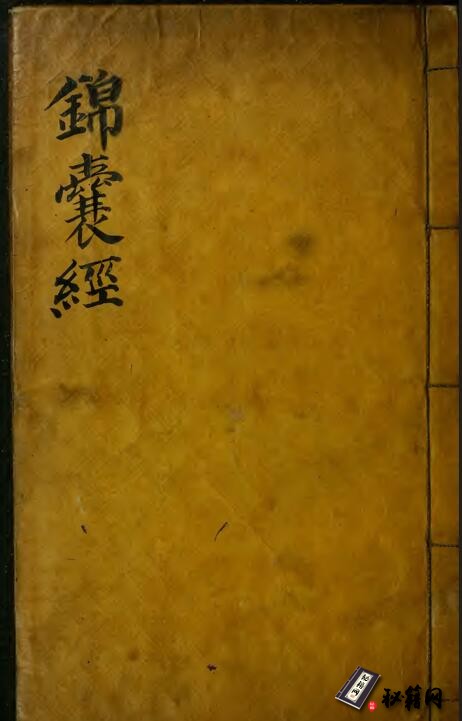 錦囊經
秘籍网